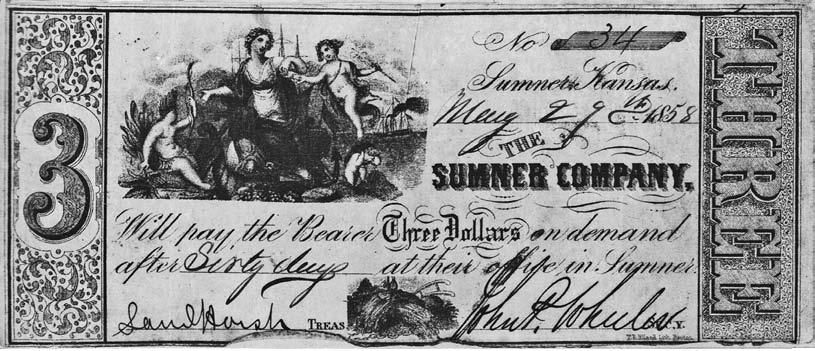 3
No 34
Sumner Kansas.
May 29th 1858
THE
SUMNER COMPANY,
Will pay the Bearer Three Dollars on demand
after Sixty days at their office in Sumner.
TREAS. John P. Wheeler SEC.Y.
THREE